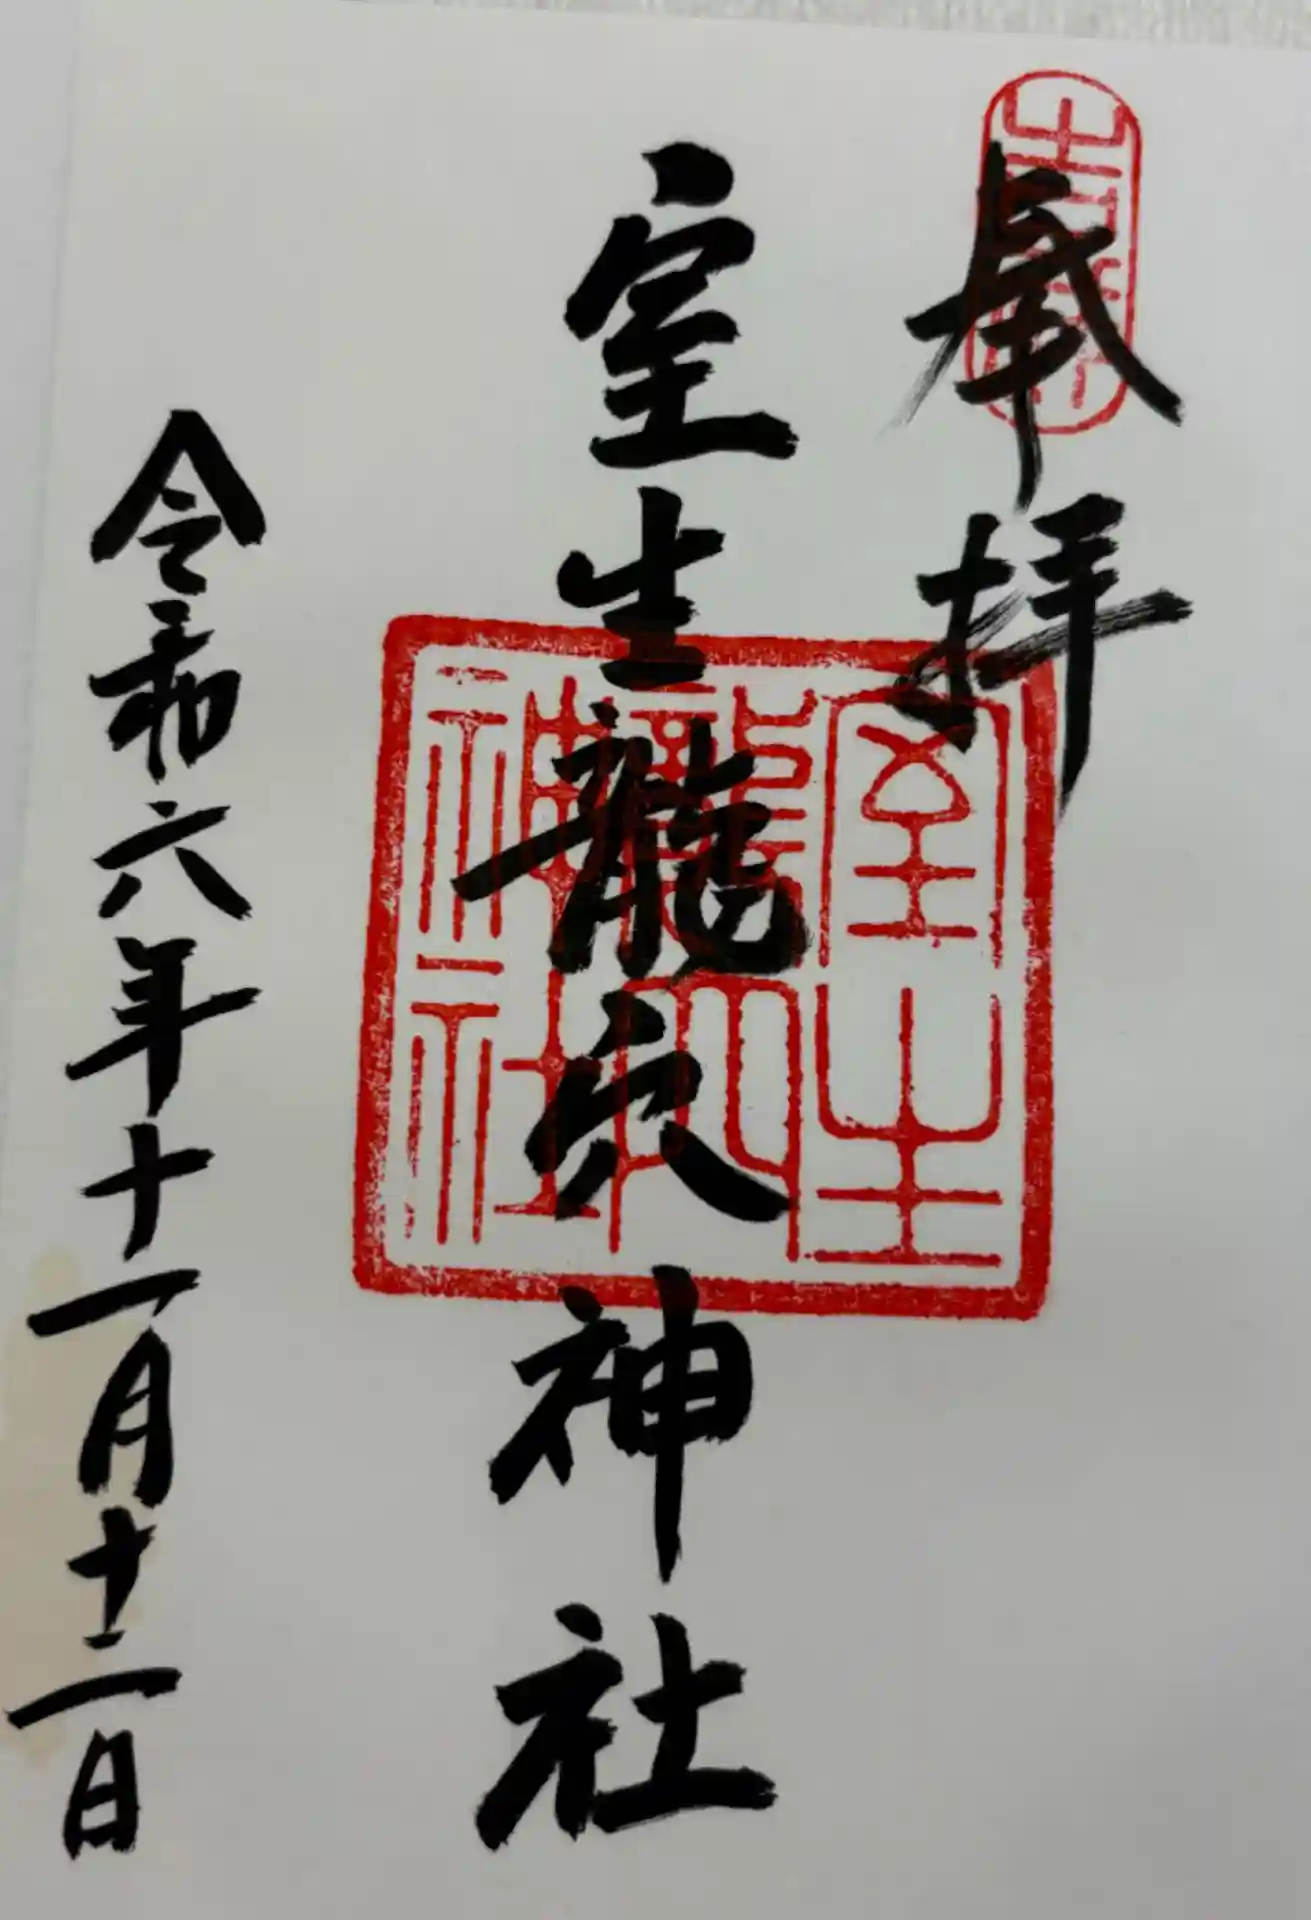 奉拝
室生龍穴神社
室生
龍穴
神社
令和六年十一月十二日